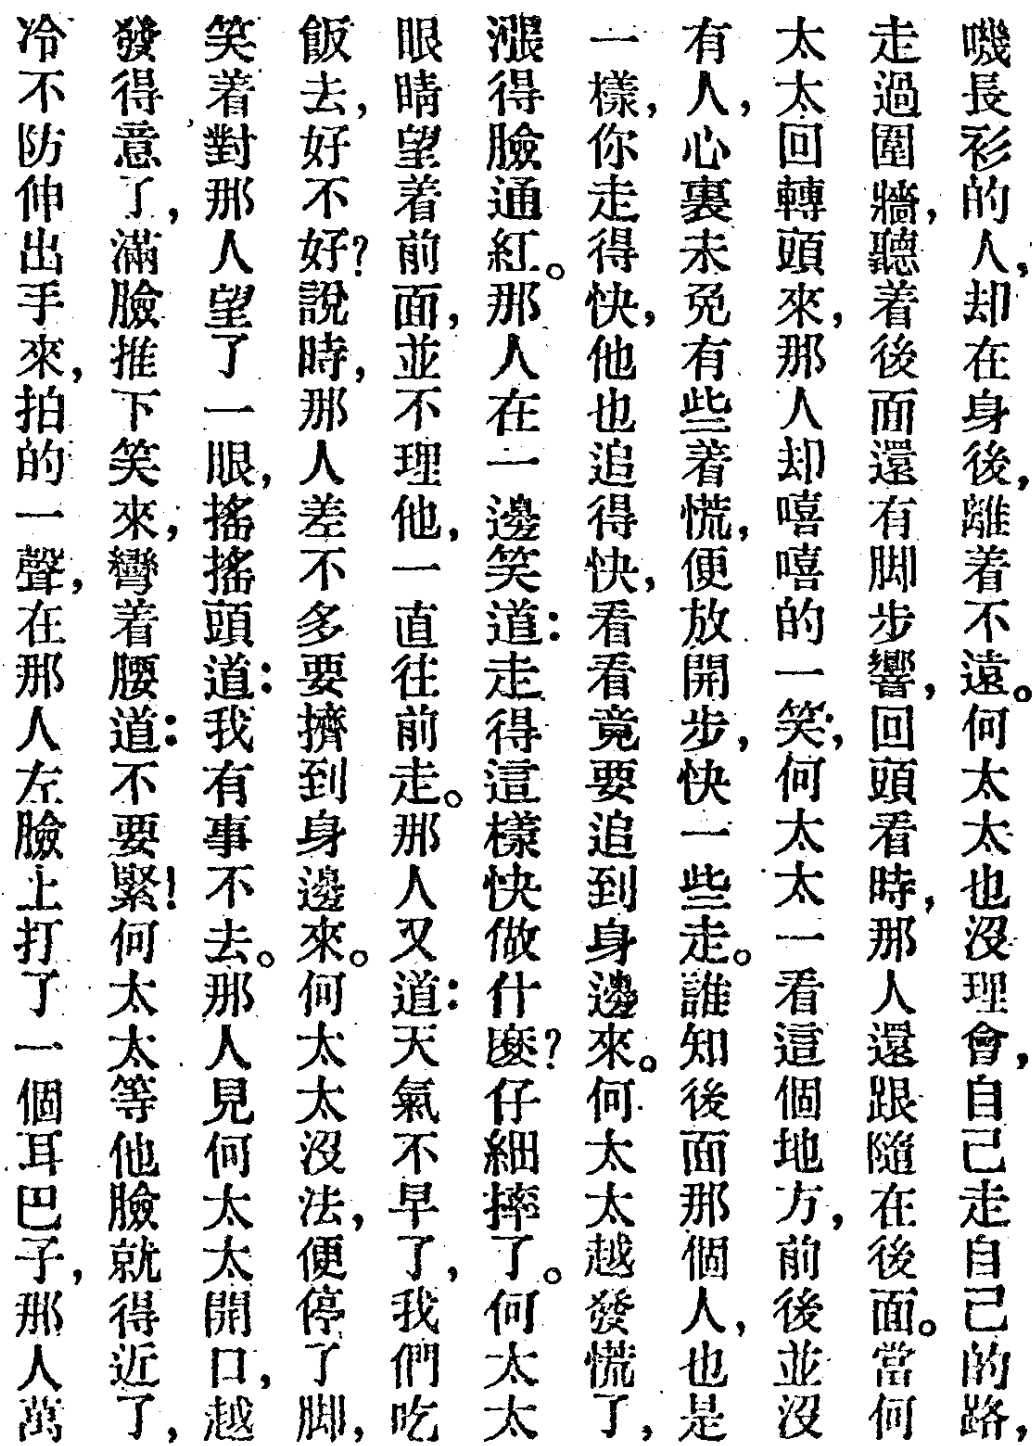 嘰長衫的人，却在身後，離着不遠。何太太也沒理會，自己走自己的路，
走過圍牆，聽着後面還有脚步響，回頭看時，那人還跟隨在後面。當何
太太回轉頭來，那人却嘻嘻的一笑；何太太一看這個地方，前後並沒
有人，心裏未免有些着慌，便放開步，快一些走。誰知後面那個人，也是
一樣，你走得快，他也追得快，看看竟要追到身邊來。何太太越發慌了，
漲得臉通紅。那人在一邊笑道：走得這樣快做什麽？仔細摔了。何太太
眼睛望着前面，並不理他，一直往前走。那人又道：天氣不早了，我們吃
飯去，好不好？說時，那人差不多要擠到身邊來。何太太沒法，便停了脚，
笑着對那人望了一眼，搖搖頭道：我有事不去。那人見何太太開口，越
發得意了，滿臉推下笑來，彎着腰道：不要緊！何太太等他臉就得近了，
冷不防伸出手來，拍的一聲，在那人左臉上打了一個耳巴子，那人萬